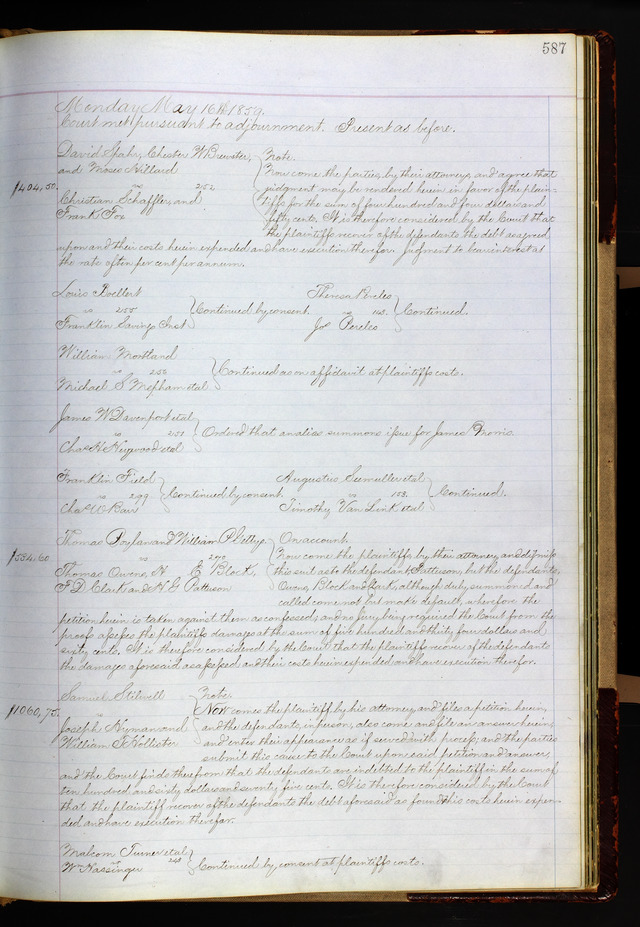 587
Monday May 16th 1859.
Court met pursuant to adjournment. Present as before.
David Spahr, Chester W Brewster, Note.
and Moses Hillard Now come the parties, by their attorneys, and agree that
$404,50. vs 2152 judgment may be rendered herein in favor of the plain-
Christian Schaffler, and tiffs for the sum of four hundred and four dollars and
Frank Fox fifty cents. It is therefore considered by the Court that
the plaintiffs recover of the defendants the debt as agreed
upon and their costs herein expended and have execution therefor. Judgment to bear interest at
the rate of ten per cent per annum.
Louis Boellert Theresa Perles
vs 2155 Continued by consent. vs 143. Continued.
Franklin Savings Inst Jos Perles
William Mortland
vs 250 Continued as on affidavit at plaintiffs costs.
Michael S Mepham etal
James W Davenport etal
vs 2151 Ordered that an alias summons issue for James Morris
Chas H Heywood etal
Franklin Field Augustus Seemuller etal
vs 2199 Continued by consent. vs 153. Continued.
Chas E Barr Timothy Van Link etal
Thomas and William On account.
$534.60 Now come the plaintiffs, by their attorney, and dismiss
vs this suit as to the defendant, Pattison, but the defendants,
Thomas Owens, H E Block, Owens, Block and Clark, although duly summoned and
F D Clark and N G Pattison called come not but make default, wherefore the
petition herein is taken against them as confessed; and no Jury being required the Court from the
proofs assesses the plaintiffs damages at the sum of five hundred and thirty four dollars and
sixty cents. It is therefore considered by the Court that the plaintiffs recover of the defendants
the damages aforesaid as assessed and their costs herein expended and have execution therefor.
Samuel Stilwell Note.
$1060,75. vs Now comes the plaintiff by his attorney, and files a petition herein,
Joseph Nyman and and the defendants, in person, also come and file an answer herein,
William T Hollister and enter their appearance as if served with process, and the parties
submit this cause to the Court upon said petition and answer;
and the Court finds therefrom that the defendants are indebted to the plaintiff in the sum of
ten hundred and sixty dollars and seventy five cents. It is therefore considered by the Court
that the plaintiff recover of the defendants the debt aforesaid as found & his costs herein expen-
ded and have execution therefor.
Malcom Turner etal
vs 248 Continued by consent at plaintiffs costs.
Wm Nassinger